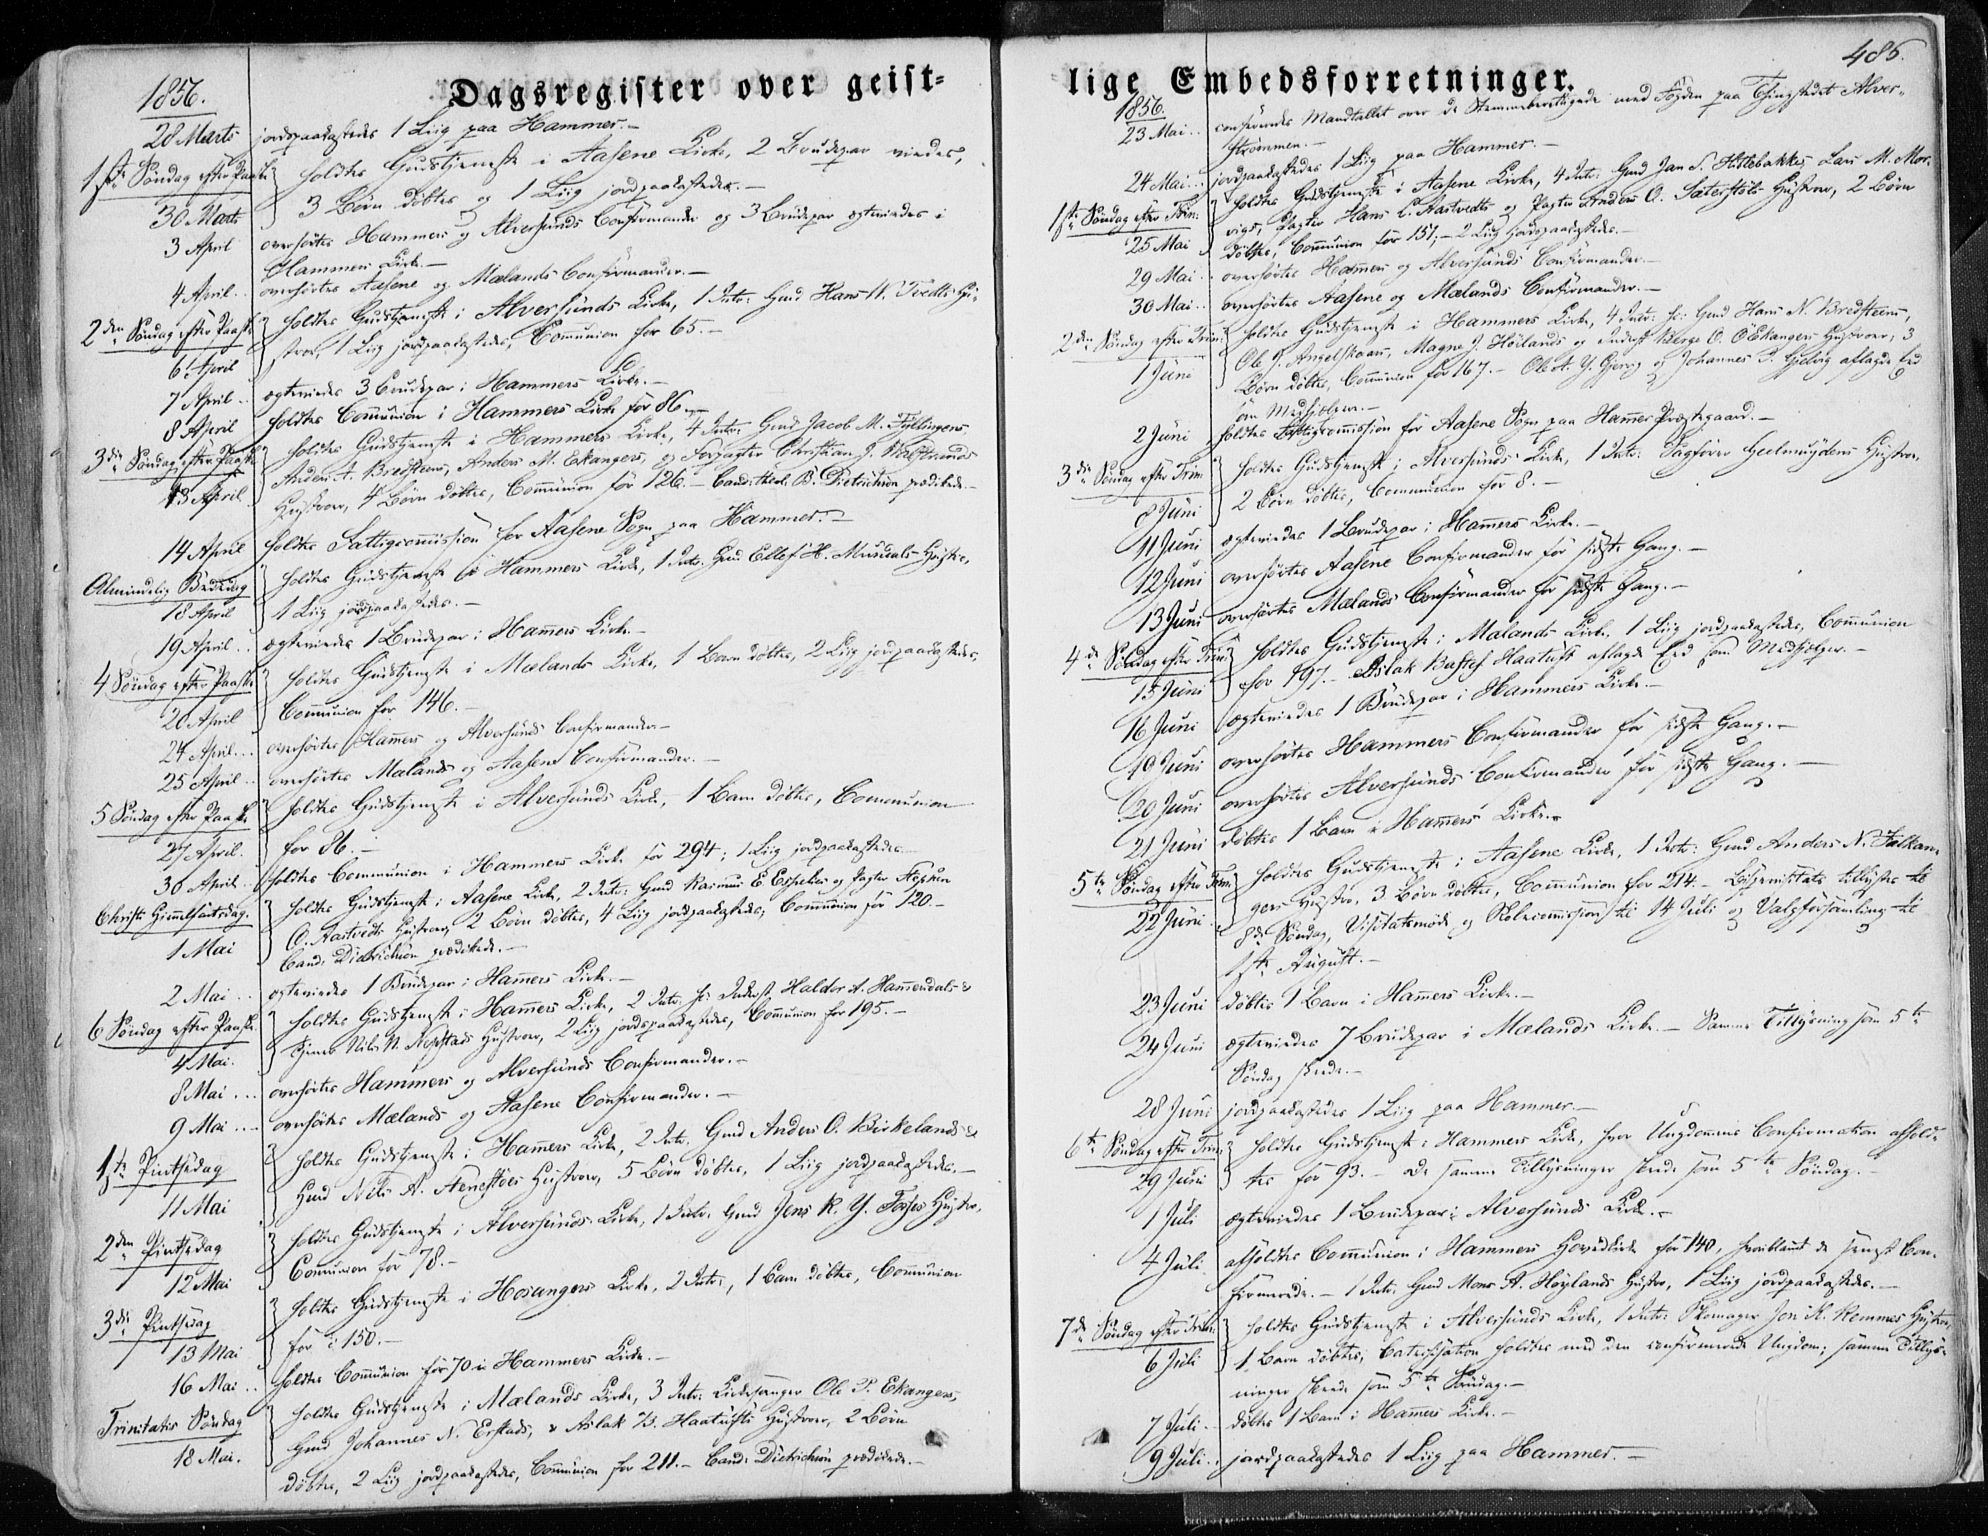 Dagsregister over geist=
1856.
28 Marts jordpaakastedes 1 Liig paa Hammer.-
1ste Søndag efter Paaske holdtes Gudstjeneste i Aasene Kirke, 2 Brudepar viedes,
30 Marts 3 Børn døbtes og 1 Liig jordpaakastedes.-
3 April overhørtes Hammers og Alversunds Confirmander og 3 Brudepar egteviedes i
Hammers Kirke.-
4 April overhørtes Aasene og Mælands Confirmander.-
2den Søndag efter Paaske holdtes Gudstjeneste i Alversunds Kirke, 1 Intr: Gmd Hans N. Tvedts Hu-
6 April stroe, 1 Liig jordpaakastedes, Communion for 65.-
7 April egteviedes 3 Brudepar i Hammers Kirke.-
8 April holdtes Communion i Hammers Kirke for 86.-
3die Søndag efter Paaske holdtes Gudstjeneste i Hammers Kirke, 4 Intr: Gmd Jacob M. Fyllingens
Anders A. Bredsteen, Anders M. Ekangers, og Forpagter Christian J.
13 April Hustroer, 4 Børn døbtes, Communion for 126.- Cand: theol: B. Dietrichson prædikede.-
14 April holdtes Fattigcommission for Aasene Sogn paa Hammer.-
Almindelig Bededag holdtes Gudstjeneste i Hammers Kirke, 1 Intr: Gmd Ellef H. Mundals Hustroe,
18 April 1 Liig jordpaakastedes.-
19 April egteviedes 1 Brudepar i Hammers Kirke.-
4 Søndag efter Paaske holdtes Gudstjeneste i Mælands Kirke, 1 Barn døbtes, 2 Liig jordpaakastedes,
20 April Communion for 146.-
24 April overhørtes Hammers og Alversunds Confirmander.-
25 April overhørtes Mælands og Aasene Confirmander.-
5 Søndag efter Paaske holdtes Gudstjeneste i Alversunds Kirke, 1 Barn døbtes, Communion
27 April. for 86.-
30 April holdtes Communion i Hammers Kirke for 294; 1 Liig jordpaakastedes.-
Christi Himmelfartsdag. holdtes Gudstjeneste i Aasene Kirke, 2 Intr: Gmd Rasmus E Espelies og Pagter Steffen
1 Mai O. Aastvedts Hustroer, 2 Børn døbtes, 4 Liig jordpaakastedes, Communion for 120.-
Cand: Dietrichson prædikede.-
2 Mai egteviedes 1 Brudepar i Hammers Kirke.-
6 Søndag efter Paaske. holdtes Gudstjeneste i Hammers Kirke, 2 Intr: fr: Inderst Haldor A. Hammersdals &
4 Mai. Nils N. Hustroer, 2 Liig jordpaakastedes, Communion for 195.-
8 Mai overhørtes Hammers og Alversunds Confirmander.-
9 Mai overhørtes Mælands og Aasene Confirmander.-
1ste Pintsedag holdtes Gudstjeneste i Hammers Kirke, 2 Intr. Gmd Anders O. Birkelands &
11 Mai Gmd Nils A. Hustroer, 5 Børn døbtes, 1 Liig jordpaakastedes.-
2den Pintsedag holdtes Gudstjeneste i Alversunds Kirke, 1 Intr. Gmd Jens R. Y. Fosses Hustroe,
12 Mai Communion for 78.-
3die Pintsedag holdtes Gudstjeneste i Hosangers Kirke, 2 Intr:, 1 Barn døbtes, Communion
13 Mai for 150.-
16 Mai holdtes Communion for 70 i Hammers Kirke.-
Trinitatis Søndag holdtes Gudstjeneste i Mælands Kirke, 3 Intr: Kirkesanger Ole P. Ekangers,
18 Mai. Gmd Johannes N. Erstads, & Aslak B. Haatufts Hustroer, 2 Børn
døbtes, 2 Liig jordpaakastedes, Communion for 211.- Cand: Dietrichson prædikede.-
lige Embedsforretninger.
485.
1856.
23 Mai confererede Mandtallet over de Stemmeberettigede med Fogden paa Thingstedet Alver-
strømmen.-
24 Mai jordpaakastedes 1 Liig paa Hammer.-
1ste Søndag efter Trin: holdtes Gudstjeneste i Aasene Kirke, 4 Intr: Gmd Jan S. Hitlebakkes, Lars M. Mor-
vigs, Pagter Hans L. Aastvedts og Pagter Anders O. Sæterstøls Hustroer, 2 Børn
25 Mai døbtes, Communion for 151,- 2 Liig jordpaakastedes.-
29 Mai overhørtes Hammers og Alversunds Confirmander.-
30 Mai overhørtes Aasene og Mælands Confirmander.-
2den Søndag efter Trin: holdtes Gudstjeneste i Hammers Kirke, 4 Intr: fr: Gmd Hans N. Bredsteens,
Ole J. Angelskaars, Magne J. Høilands og Inderst Børge O. O Ekangers Hustroer, 3
1 Juni Børn døbtes, Communion for 167.- Ole A. Y. Gjervig og Johannes P. Hjelvig aflagde Eed
som Medhjælpere.-
2 Juni holdtes Fattigcommission for Aasene Sogn paa Hammer Præstegaard.-
3die Søndag efter Trin: holdtes Gudstjeneste i Alversunds Kirke, 1 Intr: Sagfører Geelmuydens Hustroe,
8 Juni 2 Børn døbtes, Communion for 8.-
11 Juni egteviedes 1 Brudepar i Hammers Kirke.-
12 Juni overhørtes Aasene Confirmander for sidste Gang.-
13 Juni overhørtes Mælands Confirmander for sidste Gang.-
4de Søndag efter Trin: holdtes Gudstjeneste i Mælands Kirke, 1 Liig jordpaakastedes, Communion
15 Juni for 197.- Aslak Haatuft aflagde Eed som Medhjælper.-
16 Juni egteviedes 1 Brudepar i Hammers Kirke.-
19 Juni overhørtes Hammers Confirmander for sidste Gang.-
20 Juni overhørtes Alversunds Confirmander for sidste Gang.-
21 Juni døbtes 1 Barn i Hammers Kirke.-
5te Søndag efter Trin: holdtes Gudstjeneste i Aasene Kirke, 1 Intr: Gmd Anders N. Falkan-
gers Hustroe, 3 Børn døbtes, Communion for 214.- Bispevisitats tillystes til
22 Juni 8de Søndag, Visitatsmøde og Skolecommission til 14 Juli og Valgforsamling til
1ste August.-
23 Juni døbtes 1 Barn i Hammers Kirke.-
24 Juni egteviedes 7 Brudepar i Mælands Kirke.- Samme Tillysning som 5te
Søndag skede.-
28 Juni jordpaakastedes 1 Liig paa Hammer.-
6te Søndag efter Trin: holdtes Gudstjeneste i Hammers Kirke, hvor Ungdommens Confirmation afhold-
29 Juni tes for 93.- De samme Tillysninger skede som 5te Søndag.-
1 Juli egteviedes 1 Brudepar i Alversunds Kirke.-
4 Juli afholdtes Communion i Hammers Hovedkirke for 140, hvoriblandt de sidst Con-
firmerede.- 1 Intr. Gmd Mons A. Høylands Hustroe, 1 Liig jordpaakastedes.-
7de Søndag efter Trin: holdtes Gudstjeneste i Alversunds Kirke, 1 Intr: Skomager Jon K. Remmes Hustroe,
6 Juli 1 Barn døbtes, Catechisation holdtes med den confirmerede Ungdom; samme Tillys-
ninger skede som 5te Søndag.-
7 Juli døbtes 1 Barn i Hammers Kirke.-
9 Juli jordpaakastedes 1 Liig paa Hammer.-